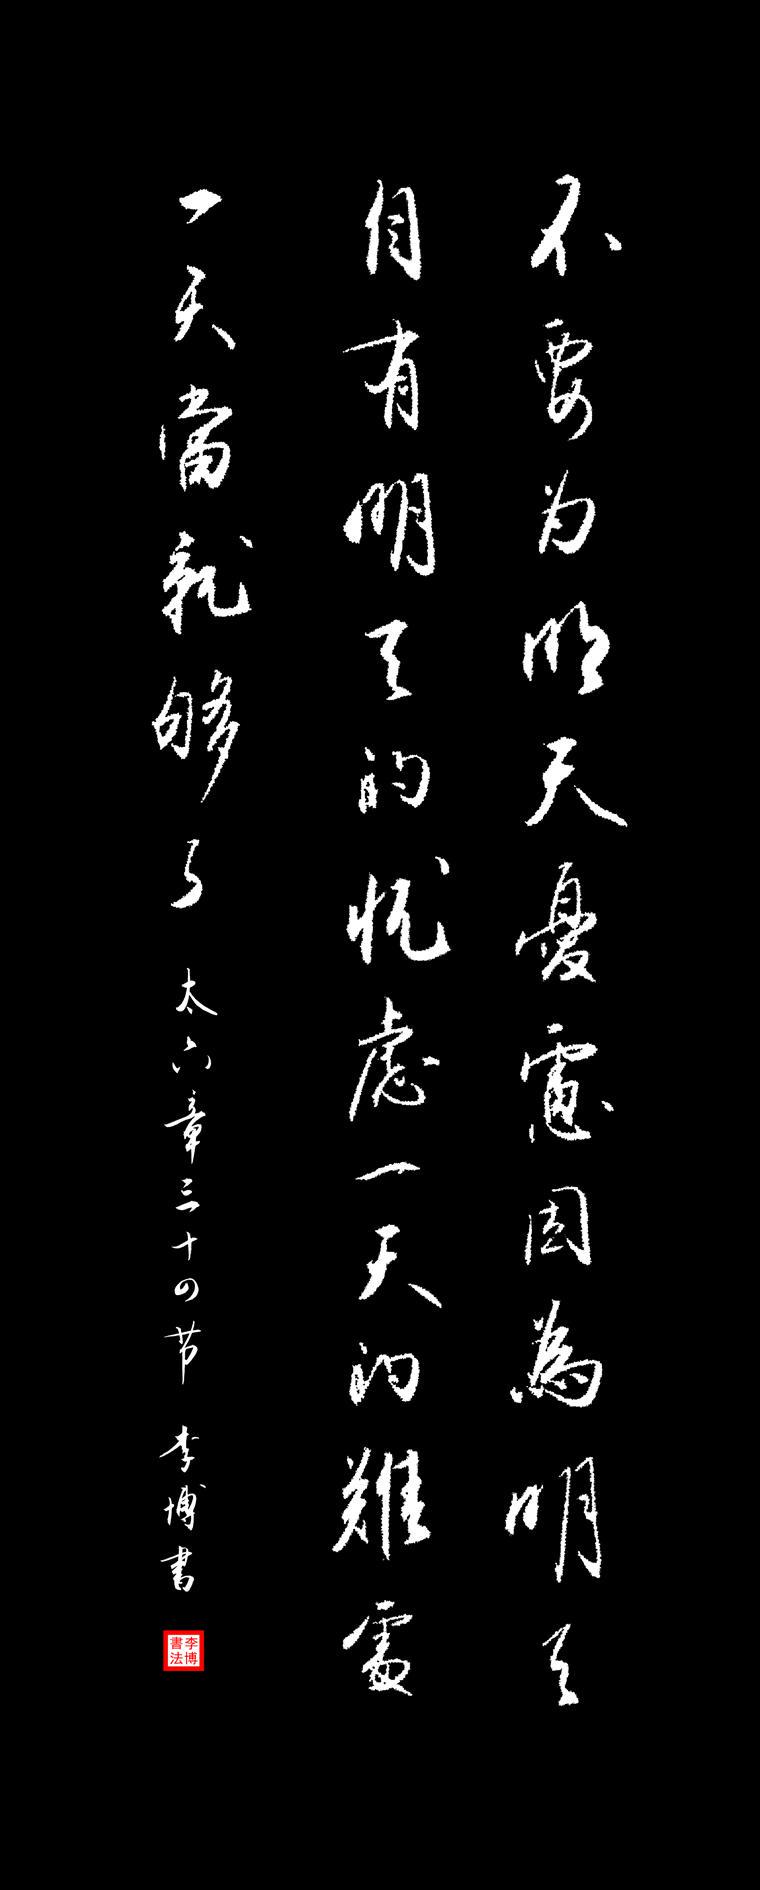 不要为明天憂慮因為明天
自有明天的忧虑一天的難處
一天當就够了 太六章三十四节 李博書
李博
書法